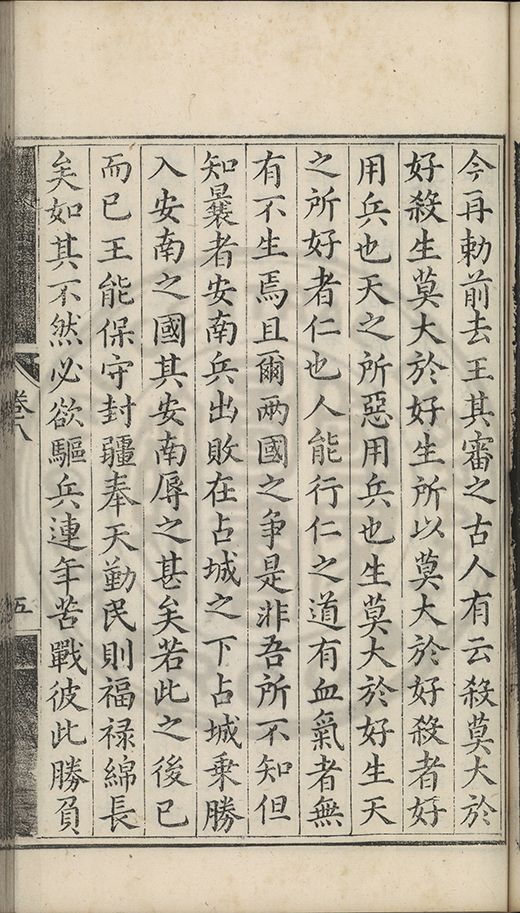 今再勅前去王其審之古人有云殺莫大於
好殺生莫大於好生所以莫大於好殺者好
用兵也天之所惡用兵也生莫大於好生天
之所好者仁也人能行仁之道有血氣者無
有不生焉且爾兩國之爭是非吾所不知但
知曩者安南兵出敗在占城之下占城乗勝
入安南之國其安南辱之甚矣若此之後已
而已王能保守封疆奉天勤民則福禄綿長
矣如其不然必欲驅兵連年苦戰彼此勝負
卷八
五